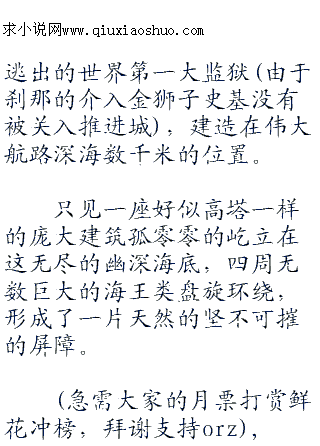 求小说网www.qiuxiaoshuo.com
逃出的世界第一大监狱(由于
刹那的介入金狮子史基没有
被关入推进城)，建造在伟大
航路深海数千米的位置。
只见一座好似高塔一样
的庞大建筑孤零零的屹立在
这无尽的幽深海底，四周无
数巨大的海王类盘旋环绕，
形成了一片天然的坚不可摧
的屏障。
(急需大家的月票打赏鲜
花冲榜，拜谢支持orz)，